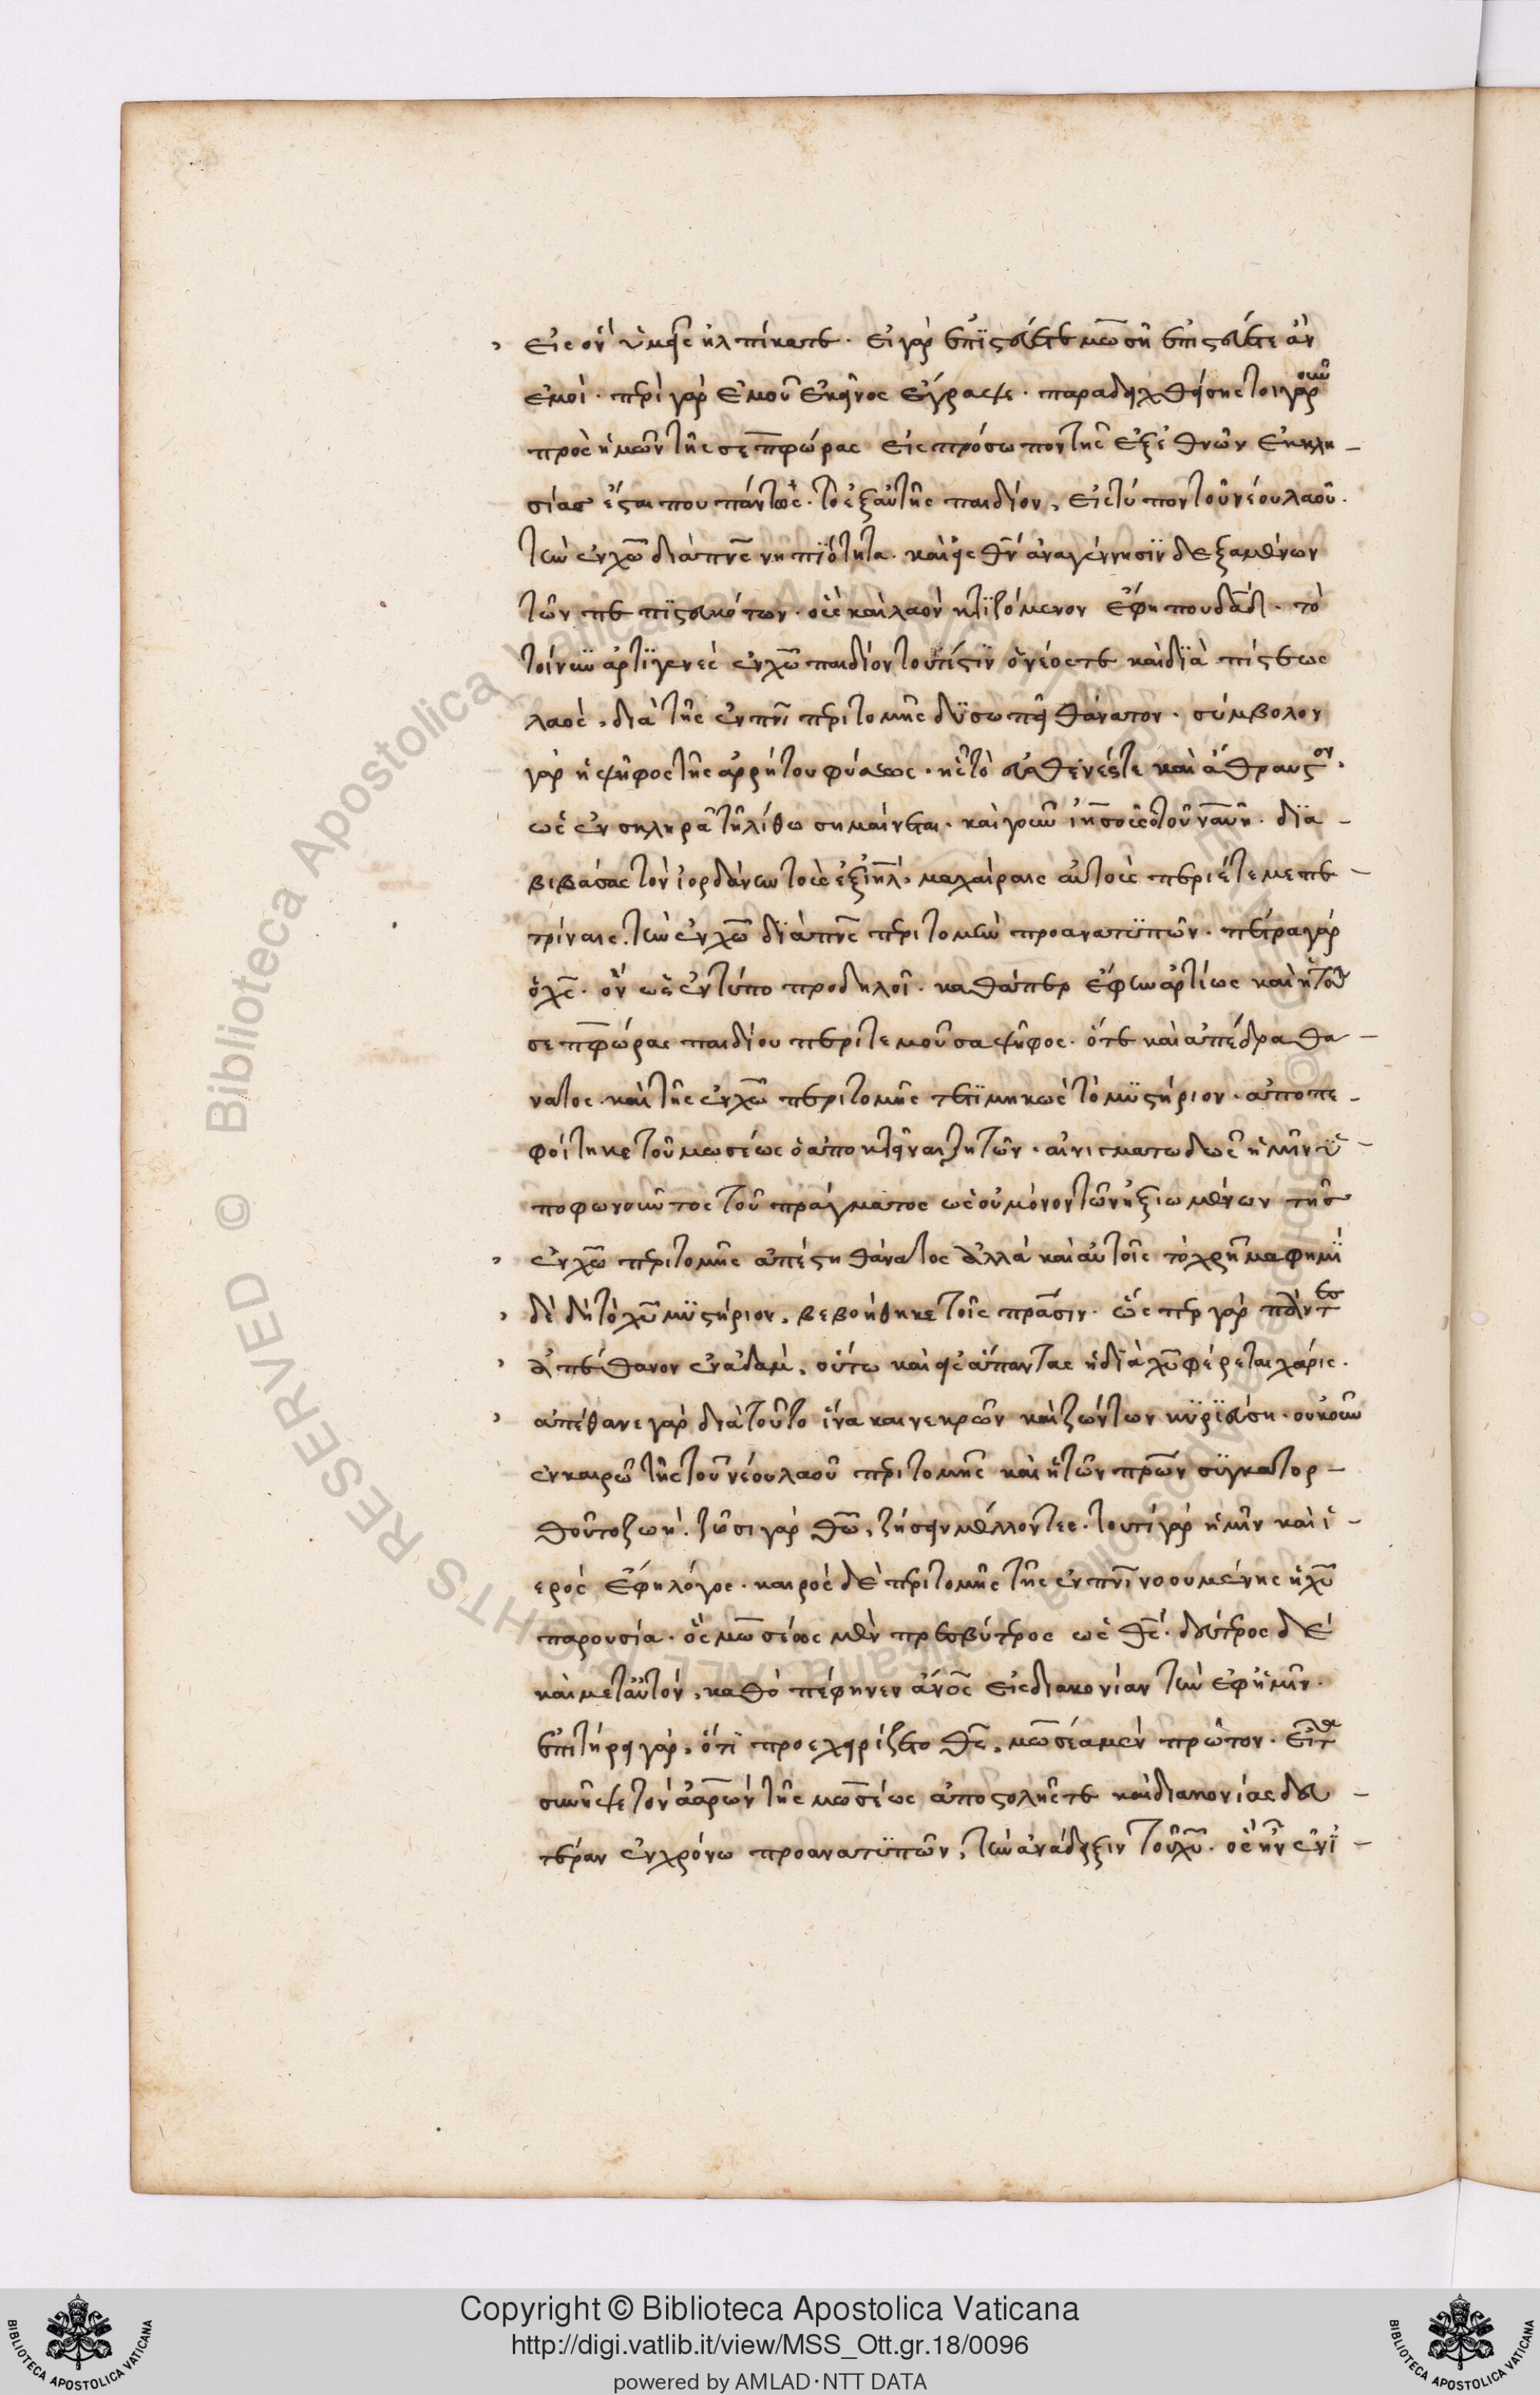 εἰς ὃν ὑμεῖς ἠλπίκατε. εἰ γὰρ ἐπιστεύετε μωσῆ ἐπιστεύετε ἂν
ἐμοί. περὶ γὰρ ἐμοῦ ἐκεῖνος ἔγραψε. παραδειχθείσης τοιγαροῦν
πρὸς ἡμῶν τῆς σεπφώρας εἰς πρόσωπον τῆς ἐξ ἐθνῶν ἐκκλη-
σίας ἔσται που πάντως. τὸ ἐξ αὐτῆς παιδίον, εἰς τύπον τοῦ νέου λαοῦ.
τὴν ἐν χῶ διὰ πνς νηπιότητα. καὶ εἰς θν ἀναγέννησιν δεξαμένων
τῶν πεπιστευκότων. οὓς καὶ λαὸν κτιζόμενον ἔφη που δαδ. τὸ
τοίνυν ἀρτιγενὲς ἐν χῶ παιδίον τουτέστιν ὁ νέος τε καὶ διὰ πίστεως
λαὸς, διὰ τῆς ἐν πνι περιτομῆς δυσωπεῖ θάνατον. σύμβολον
γὰρ ἡ ψῆφος τῆς ἀρρήτου φύσεως. ἧς τὸ εὐσθενές τε καὶ ἄθραυστον.
ὡς ἐν σκληρᾶ τῆ λίθω σημαίνεται. καὶ γοῦν ἰησοῦς ὁ τοῦ ναυῆ. δια-
βιβάσας τὸν ἰορδάνην τοὺς ἐξ ιηλ, μαχαίραις αὐτοὺς περιέτεμε πε-
τρίναις. τὴν ἐν χῶ διὰ πνς περιτομὴν προανατυπῶν. πέτρα γὰρ
ὁ χς. ὃν ὡς ἐν τύπο προδηλοῖ. καθάπερ ἔφην ἀρτίως καὶ ἡ τὸ
σεπφώρας παιδίου περιτεμοῦσα ψῆφος. ὅτε καὶ ἀπέδρα θά-
νατος. καὶ τῆς ἐν χῶ περιτομῆς τετίμηκὼς τὸ μυστήριον. ἀποπε-
φοίτηκε τοῦ μωσέως ὁ ἀποκτεῖναι ζητῶν. αἰνιγματωδῶς ἡμῖν ὑ-
ποφωνοῦντος τοῦ πράγματος ὡς οὐ μόνον τῶν ἠξιωμένων τῆς
ἐν χῶ περιτομῆς ἀπέστη θάνατος ἀλλὰ καὶ αὐτοῖς τὸ χρῆμα φημὶ
δὲ δὴ τὸ χῦ μυστήριον, βεβοήθηκε τοῖς πρᾶσιν. ὥσπερ γὰρ πάντες
ἀπέθανον ἐν ἀδαμ, οὕτω καὶ εἰς ἅπαντας ἡ διὰ χῦ φέρεται χάρις.
ἀπέθανε γὰρ διὰ τοῦτο ἵνα καὶ νεκρῶν καὶ ζώντων κυριεύση. οὐκοῦν
ἐν καιρῶ τῆς τοῦ νέου λαοῦ περιτομῆς καὶ ἡ τῶν πρων συγκατορ-
θοῦτο ζωή. ζῶσι γὰρ θῶ, ζήσειν μέλλοντες. τουτὶ γὰρ ἡμῖν καὶ ἱ-
ερὸς ἔφη λόγος. καιρὸς δὲ περιτομῆς τῆς ἐν πνι νοουμένης ἡ χῦ
παρουσία. ὃς μωσέως μὲν πρεσβύτερος ὡς θς. δεύτερος δὲ
καὶ μετ αὐτὸν, καθὸ πέφηνεν ἄνος εἰς διακονίαν τὴν ἐφ ἡμῖν.
ἐπιτήρει γὰρ, ὅτι προεχειρίζετο θς, μωσέα μὲν πρῶτον. εἶτα
συνῆψε τὸν ἀαρὼν τῆς μωσέως ἀποστολῆς τε καὶ διακονίας δευ-
τέραν ἐν χρόνω προανατυπῶν, τὴν ἀνάδειξιν τοῦ χῦ. ὃς ἦν ἐν ἰ-
Copyright © Biblioteca Apostolica Vaticana
http://digi.vatlib.it/view/MSS_Ott.gr.18/0096
powered by AMLAD·NTT DATA